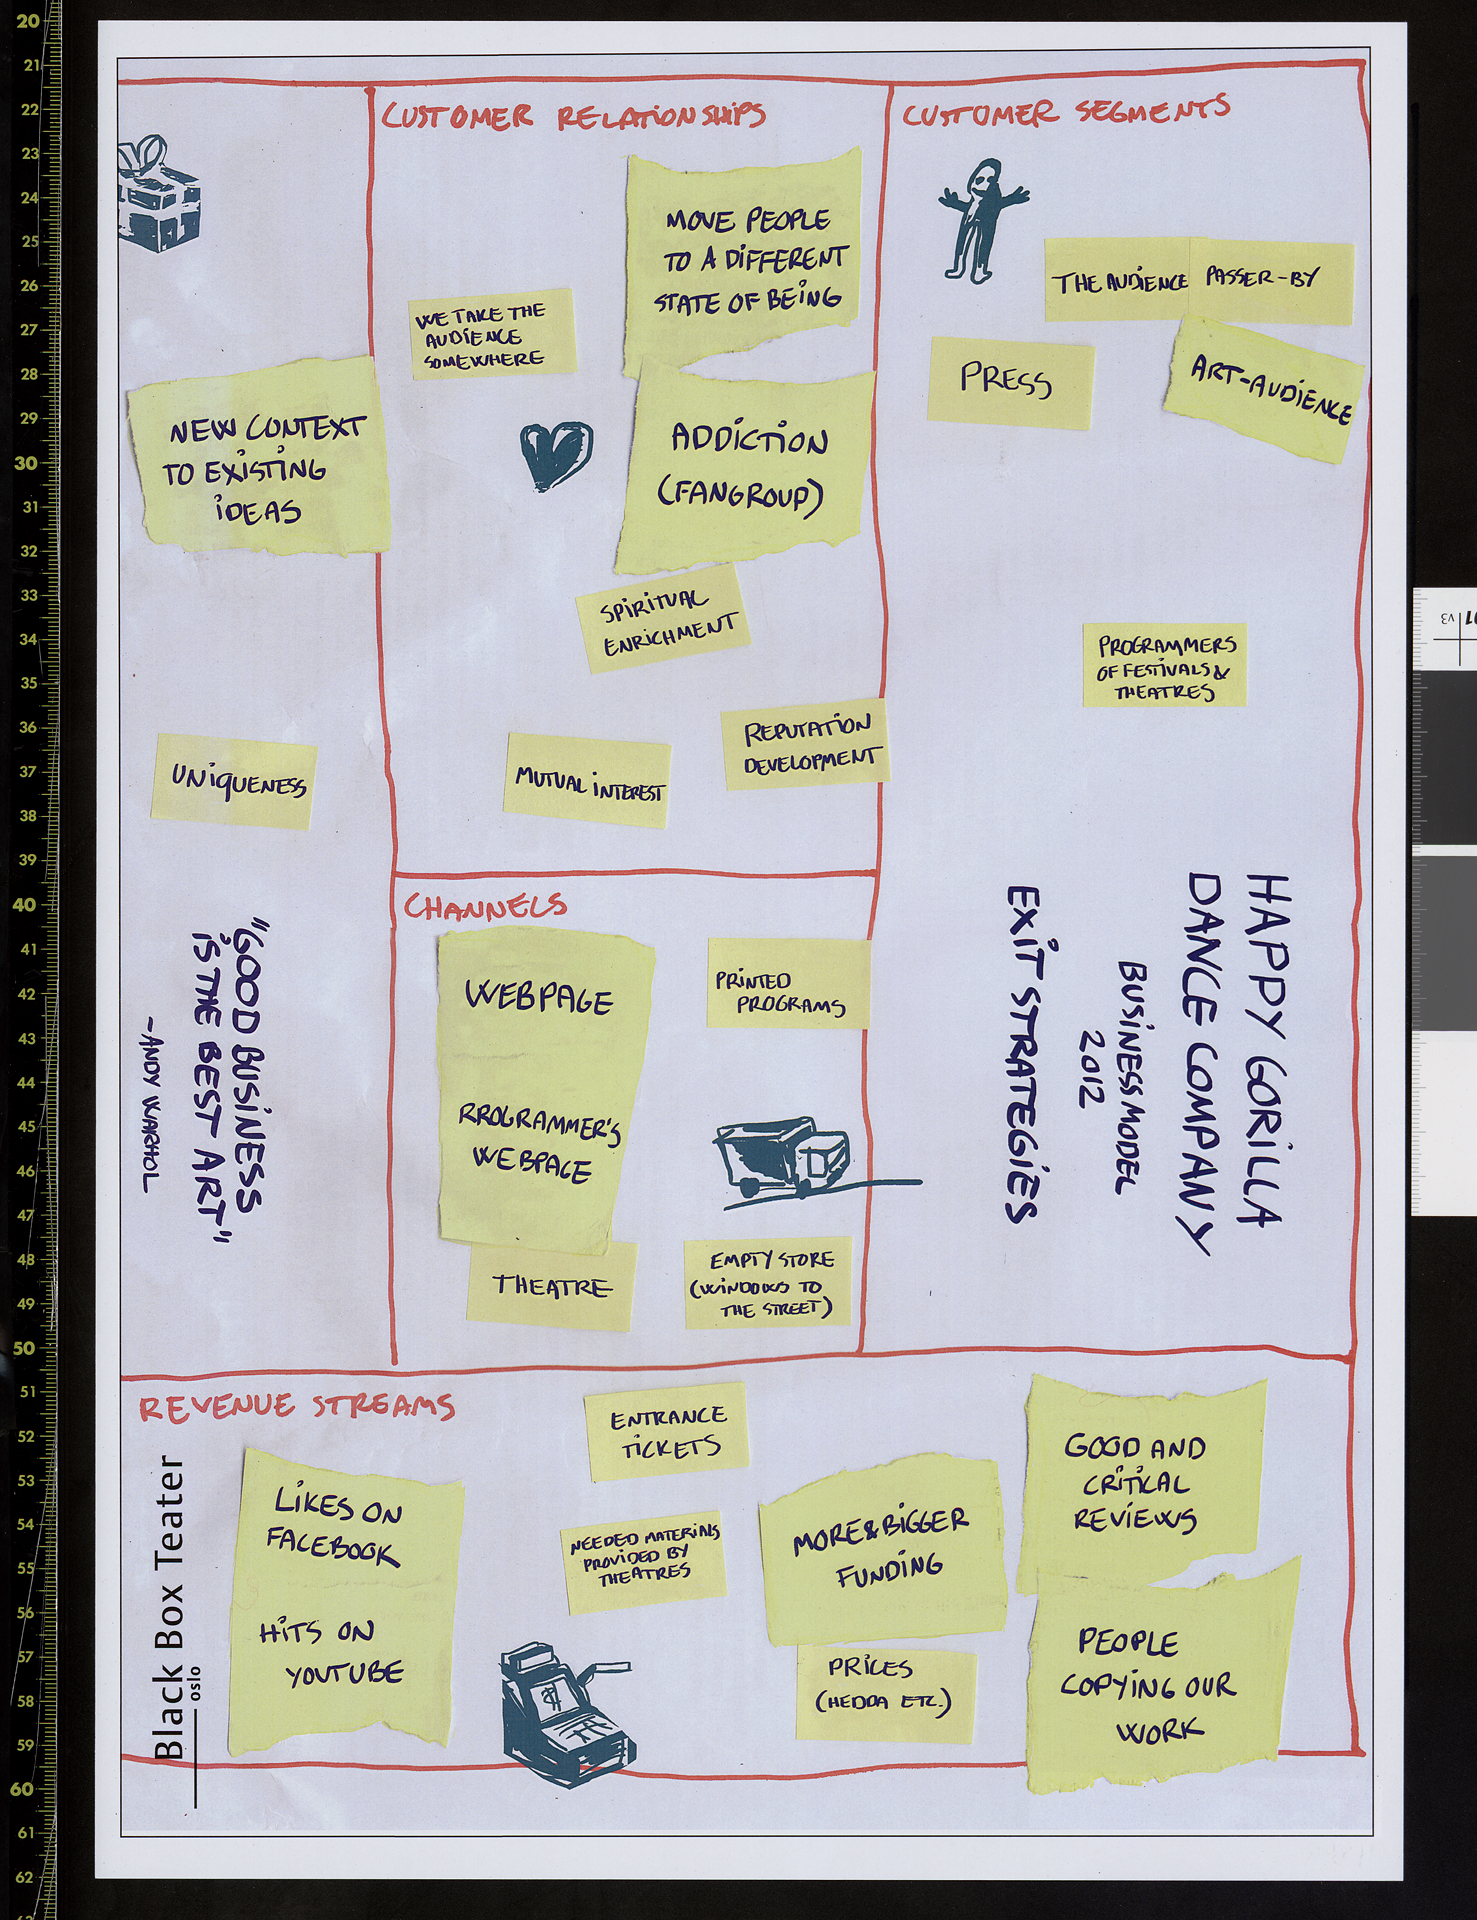 CUSTOMER RELATIONSHIPS
MOVE PEOPLE
TO A DIFFERENT
STATE OF BEING
WE TAKE THE
AUDIENCE
SOMEWHERE
ADDICTION
(FANGROUP)
SPIRITUAL
ENRICHMENT
REPUTATION
DEVELOPMENT
MUTUAL INTEREST
CUSTOMER SEGMENTS
THE AUDIENCE
PASSER-BY
PRESS
ART-AUDIENCE
PROGRAMMERS
OF FESTIVALS &
THEATRES
HAPPY GORILLA
DANCE COMPANY
BUSINESS MODEL
2012
EXIT STRATEGIES
NEW CONTEXT
TO EXISTING
IDEAS
UNIQUENESS
"GOOD BUSINESS
IS THE BEST ART"
-ANDY WARHOL
CHANNELS
WEBPAGE
RROGRAMMER'S
WEBPAGE
PRINTED
PROGRAMS
THEATRE
EMPTY STORE
(WINDOWS TO
THE STREET)
REVENUE STREAMS
LIKES ON
FACEBOOK
HITS ON
YOUTUBE
ENTRANCE
TICKETS
NEEDED MATERIALS
PROVIDED BY
THEATRES
MORE & BIGGER
FUNDING
PRICES
(HEDDA ETC.)
GOOD AND
CRITICAL
REVIEWS
PEOPLE
COPYING OUR
WORK
Black Box Teater
oslo
20
21
22
23
24
25
26
27
28
29
30
31
32
33
34
35
36
37
38
39
40
41
42
43
44
45
46
47
48
49
50
51
52
53
54
55
56
57
58
59
60
61
62
v3